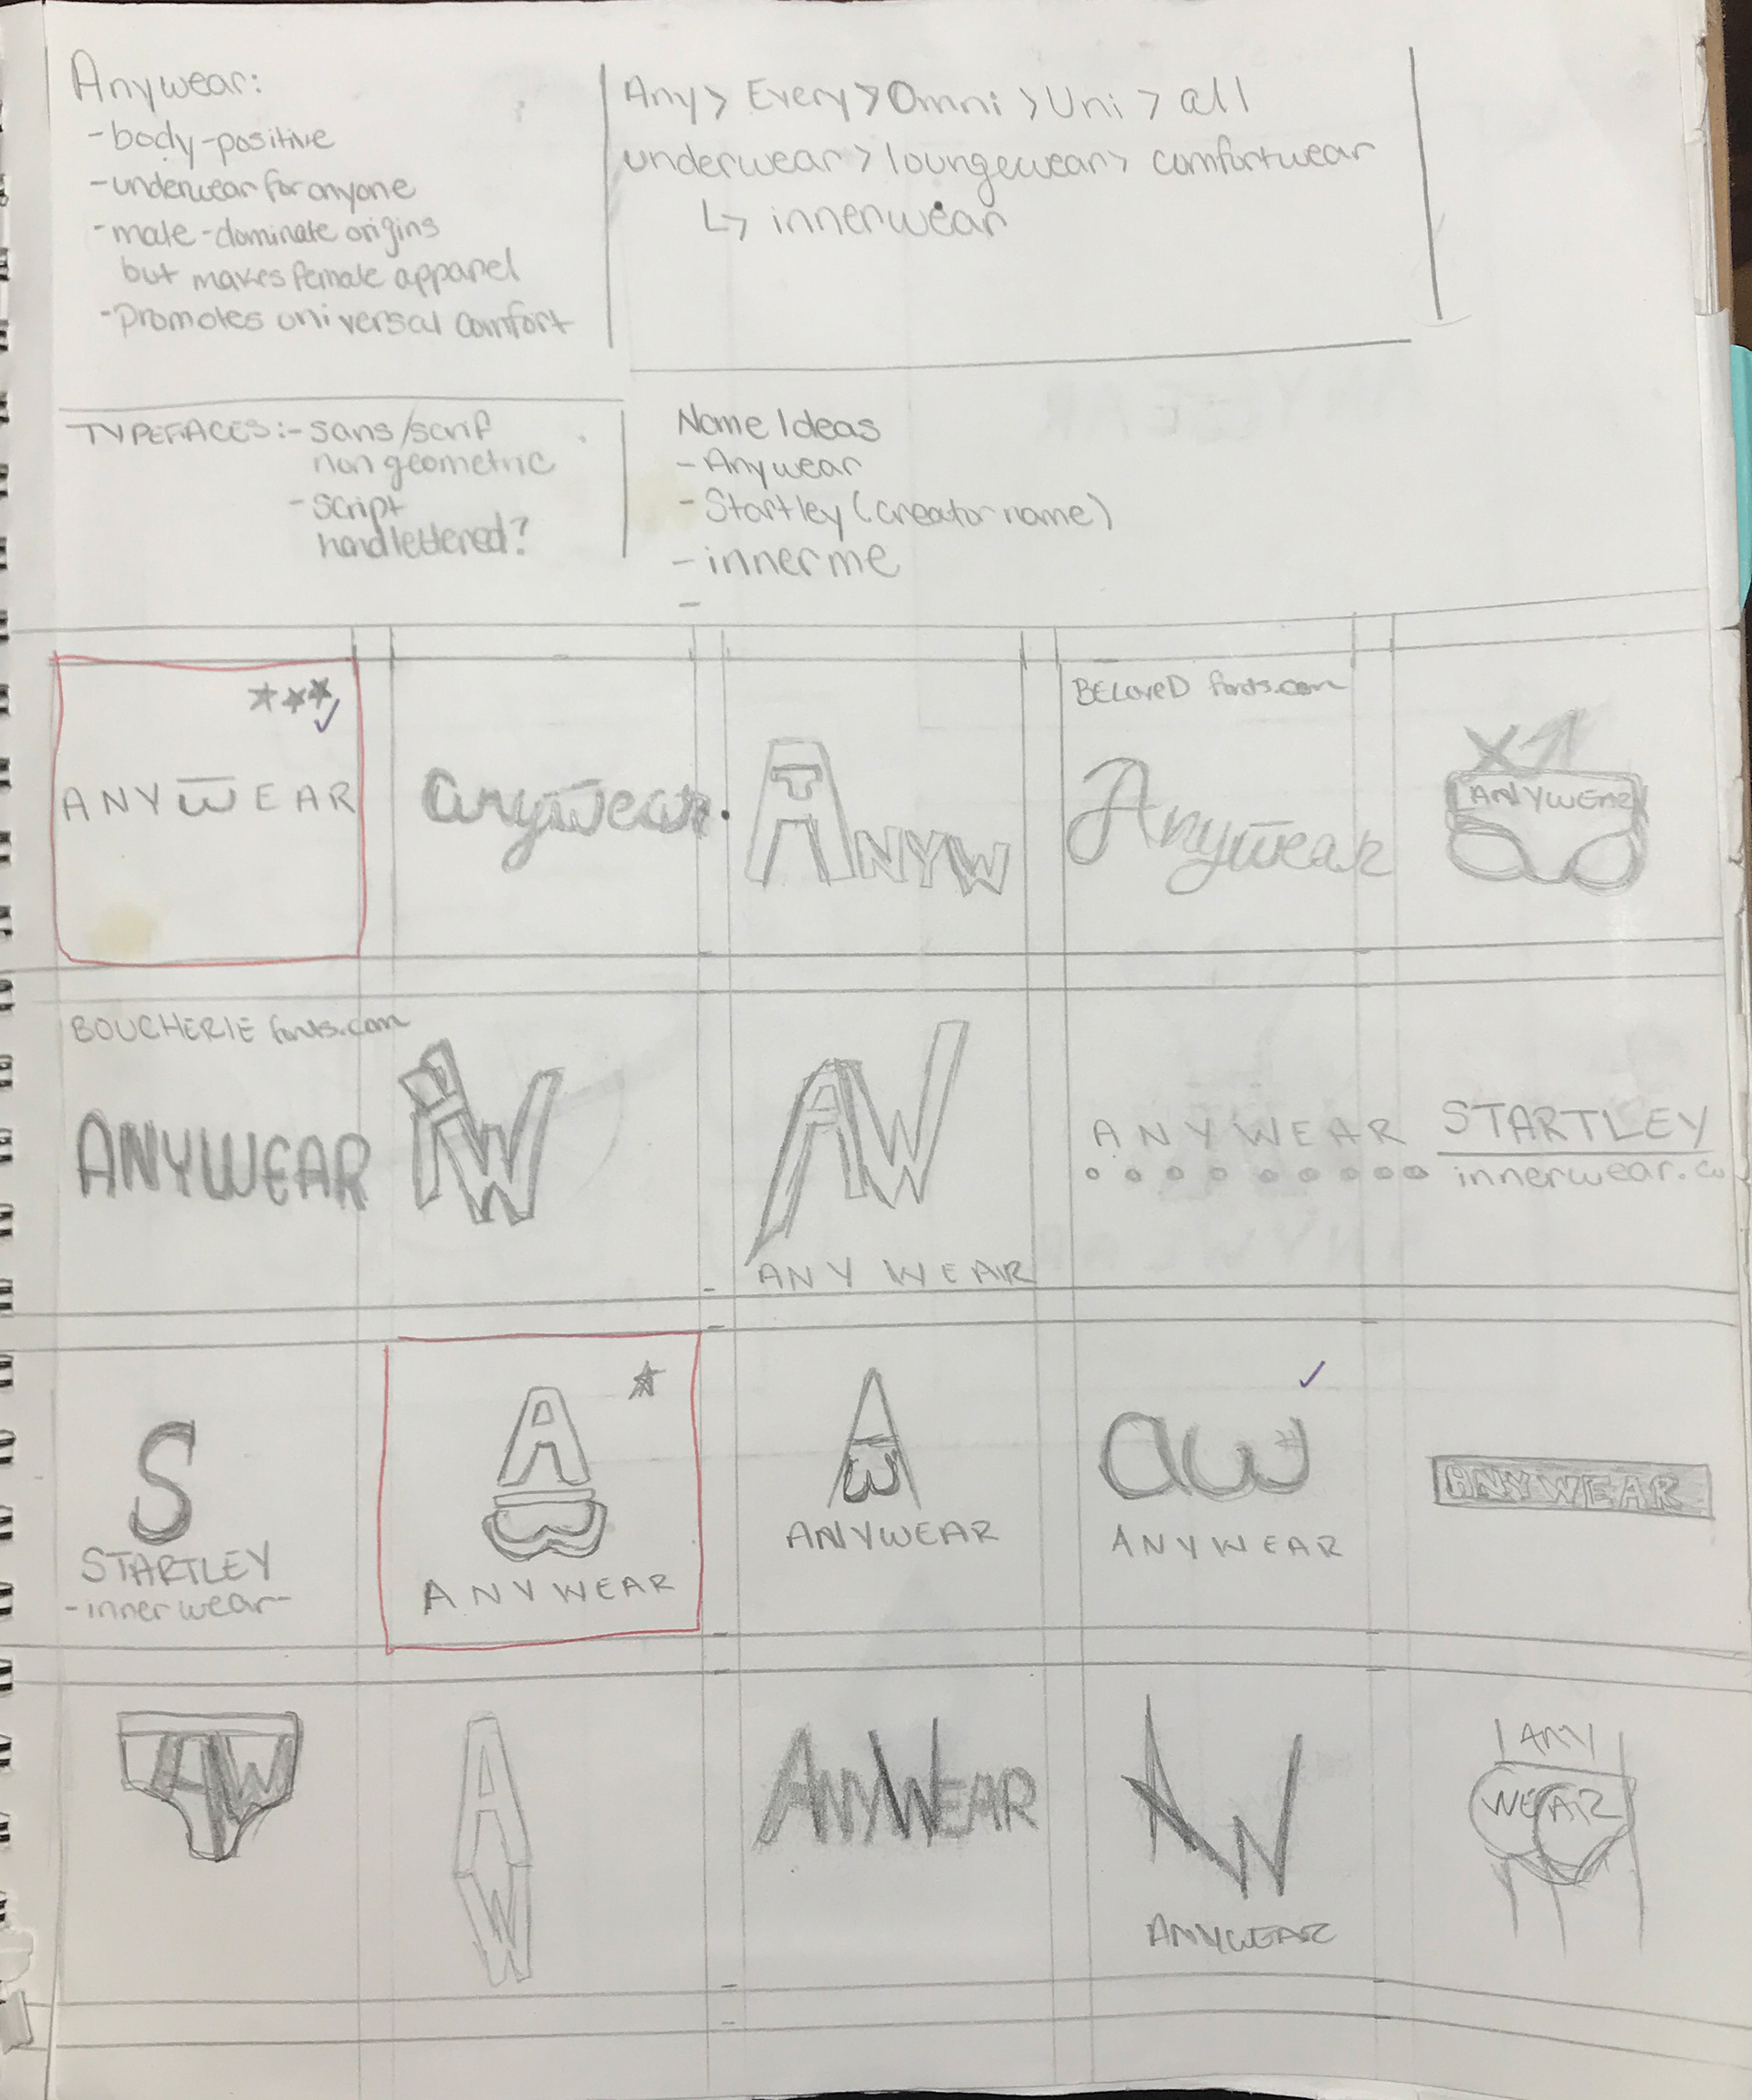 Anywear:
- body-positive
- underwear for anyone
- male-dominate origins
but makes female apparel
- Promotes universal comfort
Any > Every > Omni > Uni > all
underwear > loungewear > comfortwear
↳ innerwear
TYPEFACES: - sans/serif
non geometric
- script
handlettered?
Name Ideas
- Anywear
- Startley (creator name)
- inner me
-
ANYWEAR
anywear
ANYW
BELOVED fonts.com
Anywear
X1
ANYWEAR
BOUCHERIE fonts.com
ANYWEAR
AW
AW
ANYWEAR
ANYWEAR
STARTLEY
innerwear.co
S
STARTLEY
-innerwear-
A
W
ANYWEAR
A
W
ANYWEAR
aw
ANYWEAR
ANYWEAR
AW
A
W
ANYWEAR
AW
ANYWEAR
ANY
WEAR